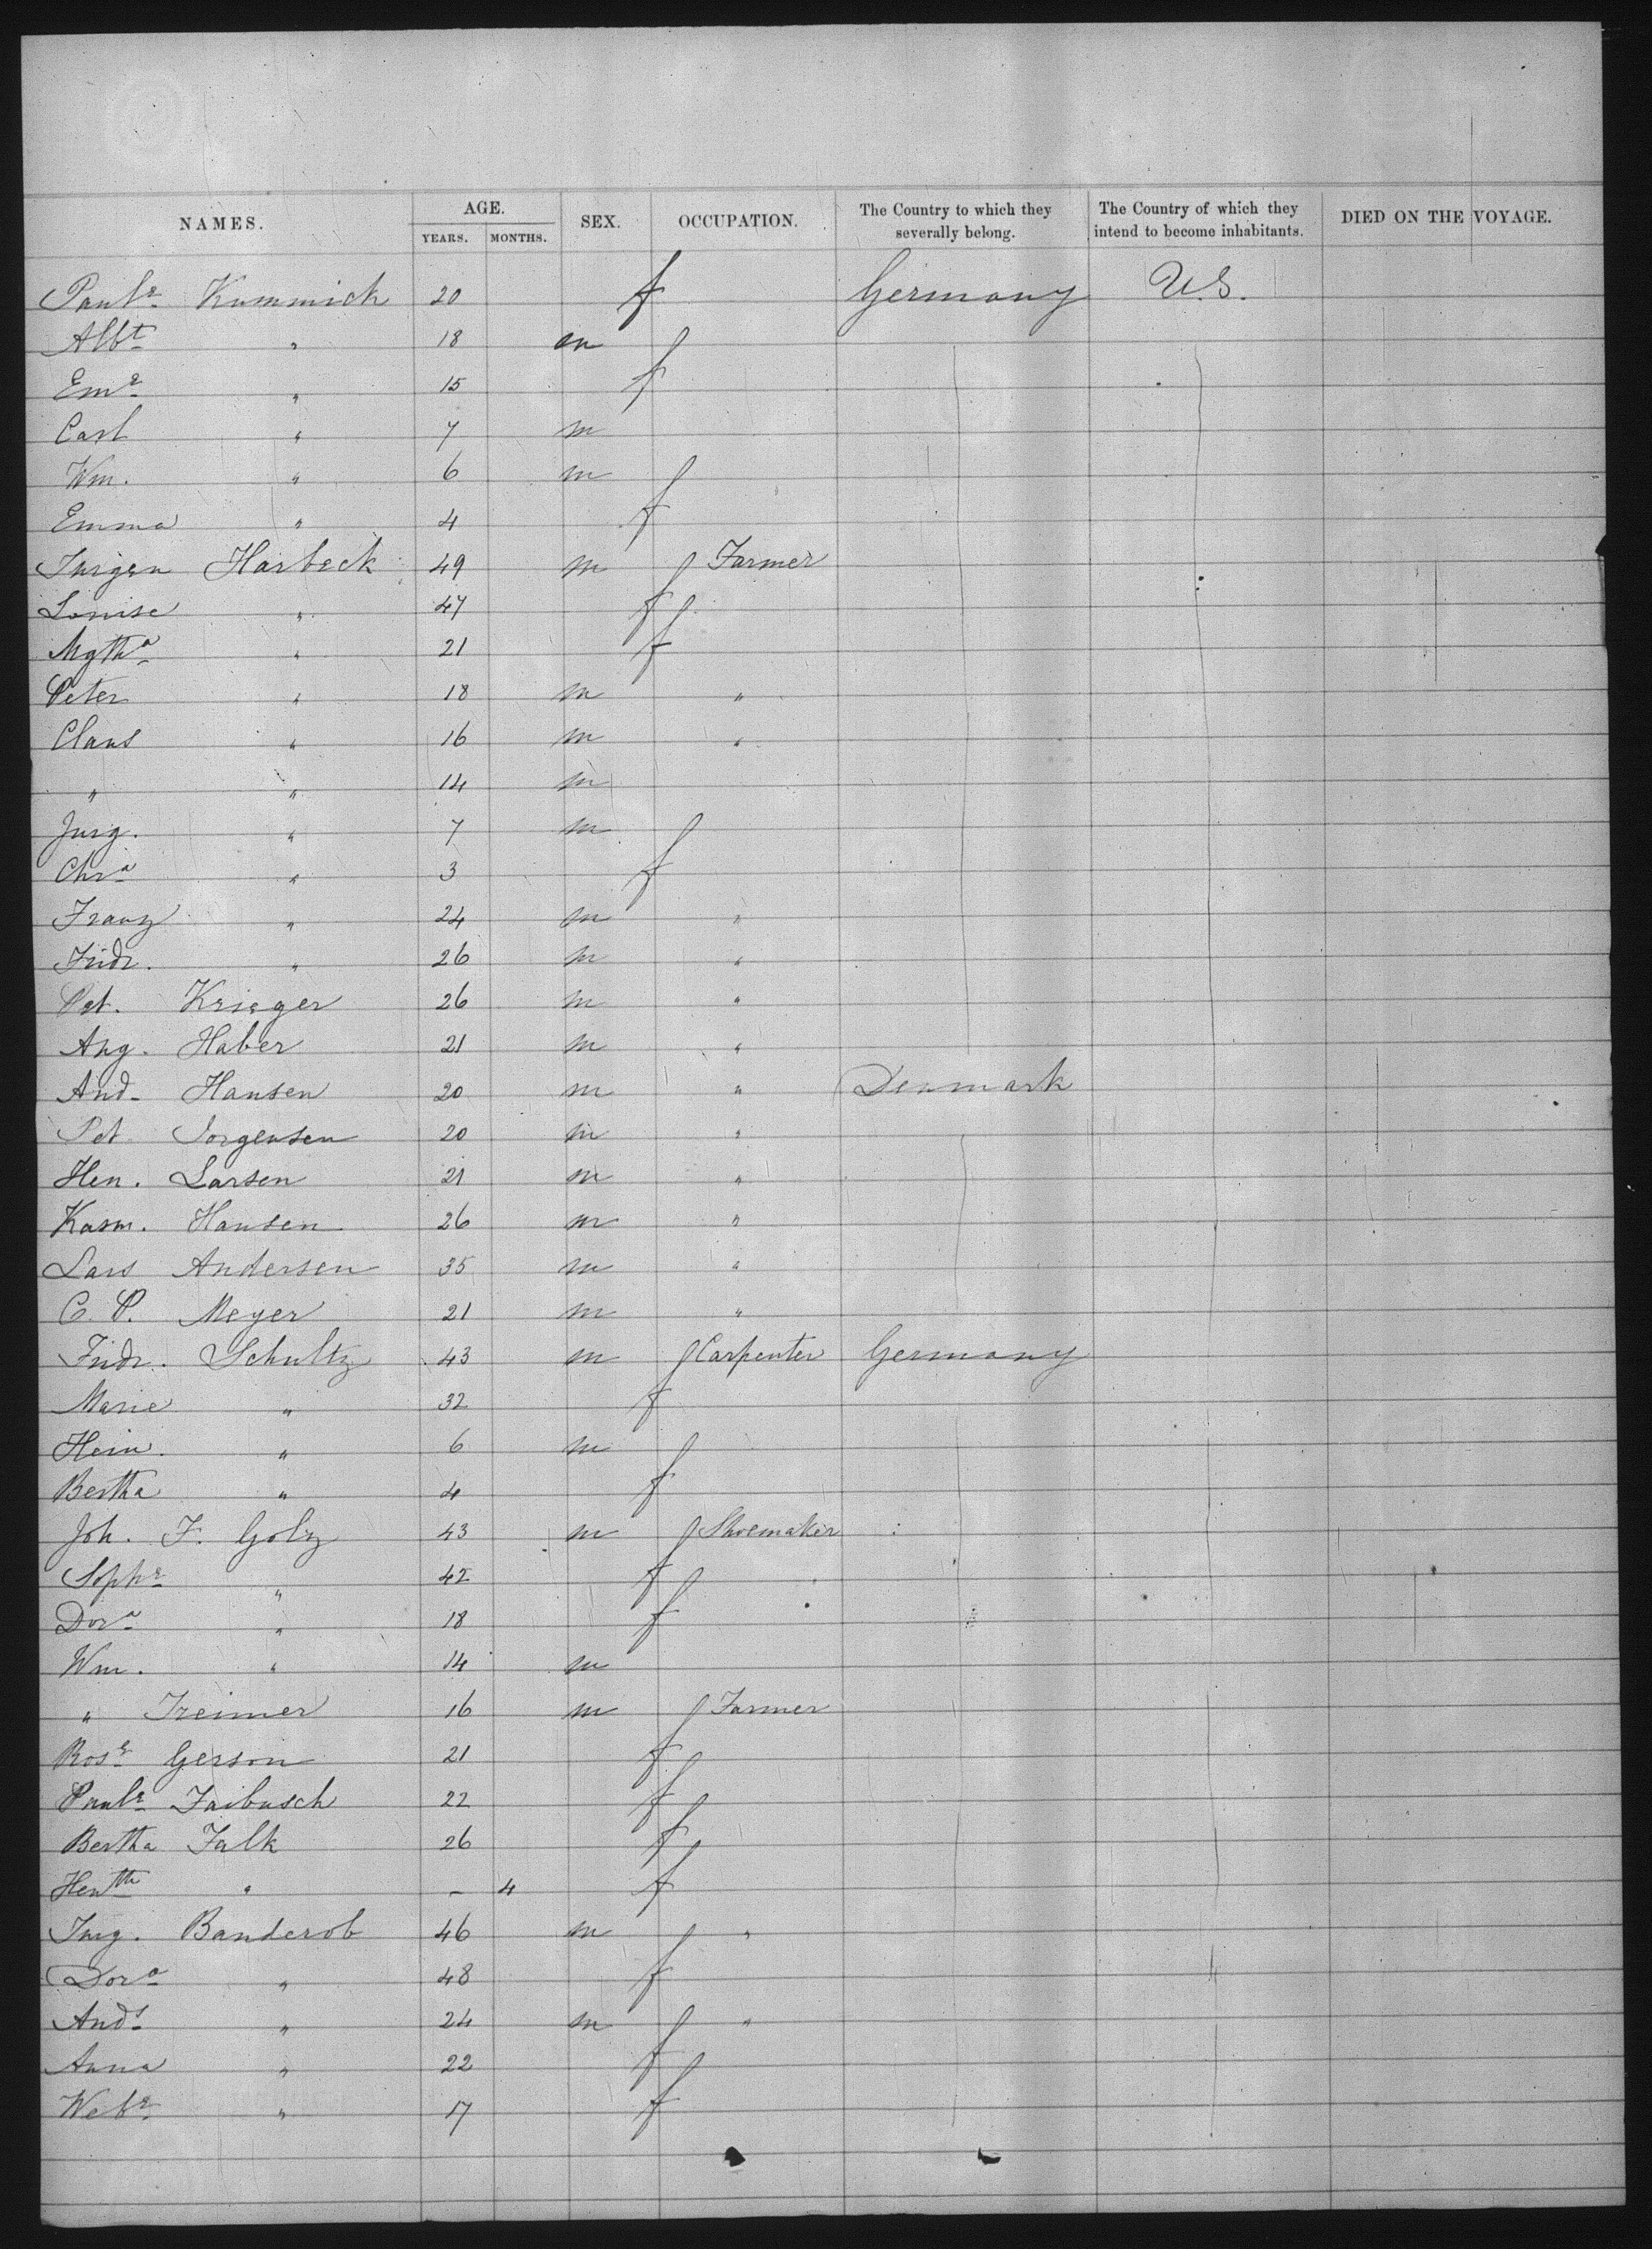 NAMES. AGE. SEX. OCCUPATION. The Country to which they severally belong. The Country of which they intend to become inhabitants. DIED ON THE VOYAGE.
YEARS. MONTHS.
Paule Kummich 20 f Germany U.S.
Albt " 18 m
Eme " 15 f
Carl " 7 m
Wm. " 6 m
Emma " 4 f
Jurgen Harbeck 49 m Farmer
Louise " 47 f
Mgtha " 21 f
Peter " 18 m "
Claus " 16 m "
" " 14 m
Jurg. " 7 m
Chra " 3 f
Franz " 24 m "
Fridr. " 26 m "
Pet. Krieger 26 m "
Aug. Haber 21 m "
And. Hansen 20 m " Denmark
Pet Jorgensen 20 m "
Hen. Larsen 21 m "
Kasm. Hansen 26 m "
Lars Andersen 35 m "
C. P. Meyer 21 m "
Fridr. Schultz 43 m Carpenter Germany
Marie " 32 f
Hein. " 6 m
Bertha " 4 f
Joh. F. Golz 43 m Shoemaker
Sophe " 42 f
Dora " 18 f
Wm. " 14 m
" Treimer 16 m Farmer
Rose Gerson 21 f
Paule Faibusch 22 f
Bertha Falk 26 f
Hentte " - 4 f
Jurg. Banderob 46 m "
Dora " 48 f
Ands " 24 m "
Anna " 22 f
Webe " 17 f